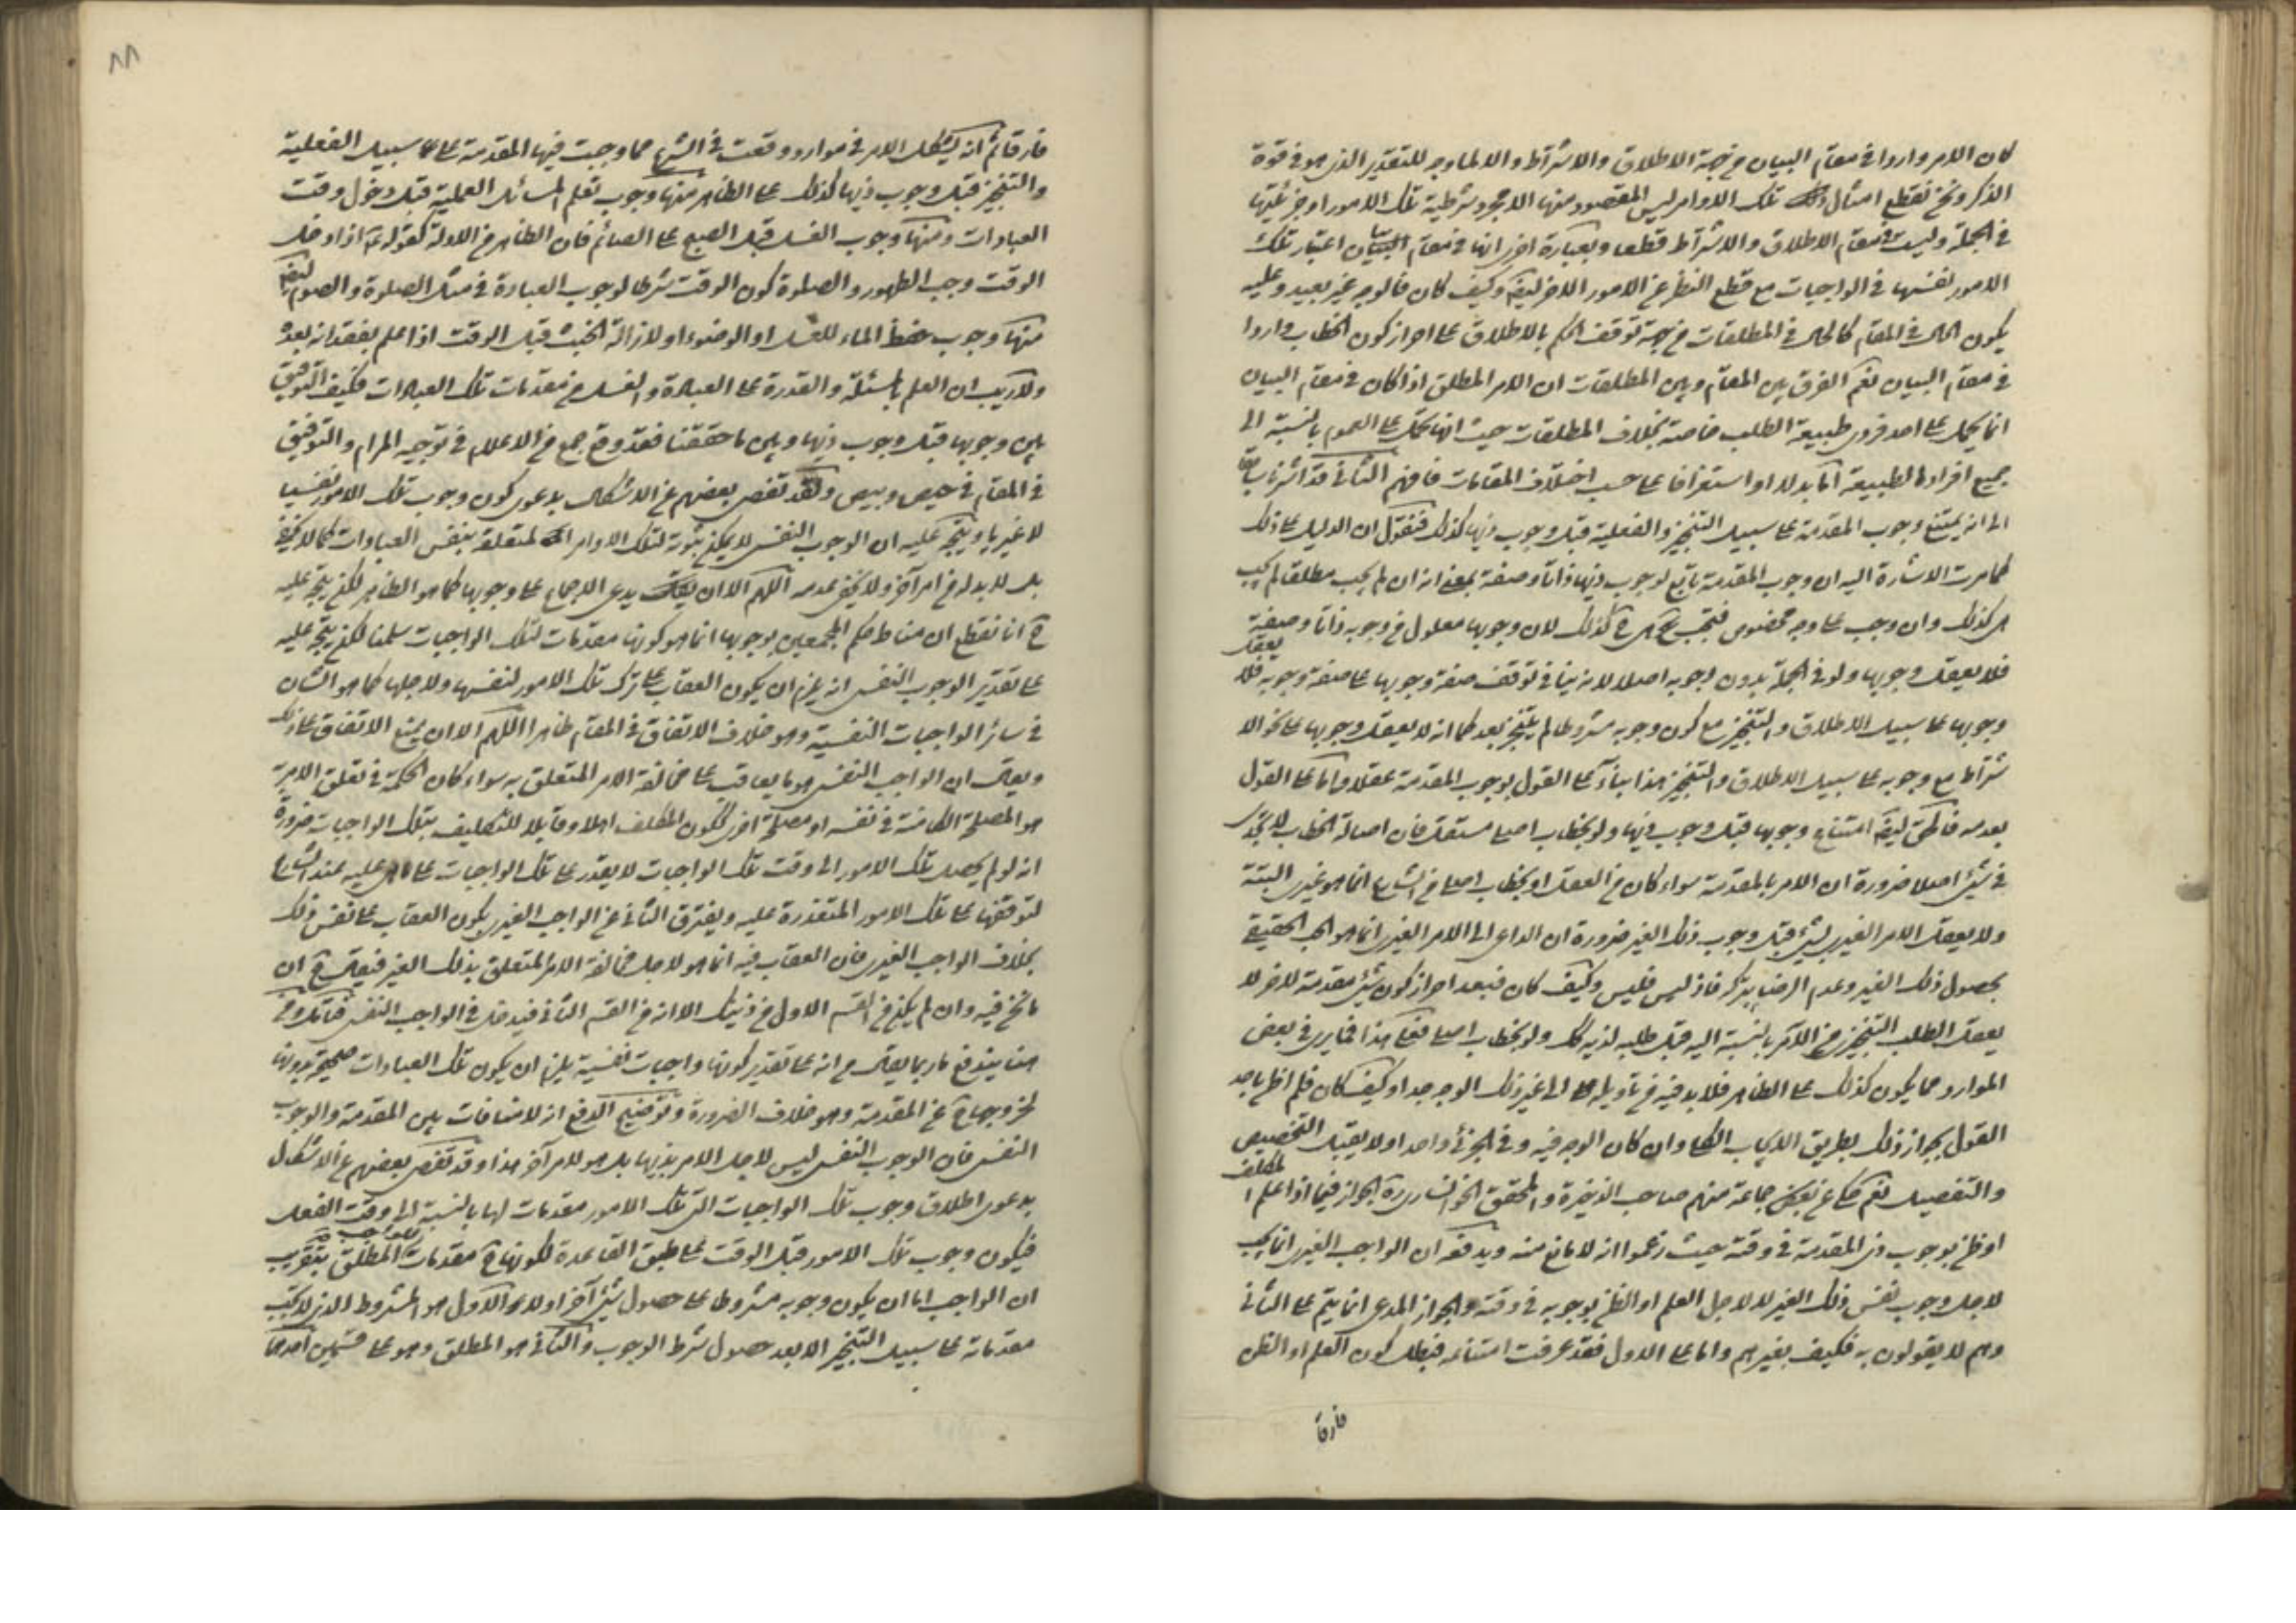 كان الامر واردا فى مقام البيان من جهة الاطلاق والاشتراط والا فلا وجه للتقدير الذى هو فى قوة
الذكر ونحن نقطع امثال تلك الاوامر ليس المقصود منها الا مجرد شرطية تلك الامور او جزئيتها
فى الجملة وليست فى مقام الاطلاق والاشتراط قطعا وبعبارة اخرى انها فى مقام بيان اعتبار تلك
الامور نفسها فى الواجبات مع قطع النظر عن الامور الاخر ايضا وكيف كان فالوجه غير بعيد وعليه
يكون الحال فى المقام كالحال فى المطلقات من جهة توقف الحكم بالاطلاق على احراز كون الخطاب واردا
فى مقام البيان نعم الفرق بين المقام وبين المطلقات ان الامر المطلق اذا كان فى مقام البيان
انما يحمل على احد فردى طبيعة الطلب خاصة بخلاف المطلقات حيث انها تحمل على العموم بالنسبة الى
جميع افراد الطبيعة اما بدلا او استغراقا على حسب اختلاف المقامات فافهم الثانى قد اشرنا سابقا
الى انه يمتنع وجوب المقدمة على سبيل التنجيز والفعلية قبل وجوب ذيها كذلك فنقول ان الدليل على ذلك
كما مرت الاشارة اليه ان وجوب المقدمة تابع لوجوب ذيها ذاتا وصفة بمعنى انه ان لم يجب مطلقا لم يجب
هى كذلك وان وجب على وجه مخصوص فتجب هى ح كذلك لان وجوبها معلول من وجوبه ذاتا وصفة
فلا يعقل وجوبها ولو فى الجملة بدون وجوبه اصلا لانه ينافى توقف صفة وجوبها على صفة وجوبه فلا يعقل
وجوبها على سبيل الاطلاق والتنجيز مع كون وجوبه مشروطا لم يتنجز بعد كما انه لا يعقل وجوبها على نحو الا
شتراط مع وجوبه على سبيل الاطلاق والتنجيز هذا بناء على القول بوجوب المقدمة عقلا واما على القول
بعدمه فالحق ايضا امتناع وجوبها قبل وجوب ذيها ولو بخطاب اصلى مستقل فان اصالة الخطاب لا يجدى
فى شئ اصلا ضرورة ان الامر بالمقدمة سواء كان من العقل او بخطاب اصلى من الشارع انما هو غيرى البتة
ولا يعقل الامر الغيرى بشئ قبل وجوب ذلك الغير ضرورة ان الداعى الى الامر الغيرى انما هو الحب الحقيقى
بحصول ذلك الغير وعدم الرضا بتركه فاذ ليس فليس وكيف كان فبعد احراز كون شئ مقدمة للاخر لا
يعقل الطلب التنجيزى من الآمر بالنسبة اليه قبل طلبه لذيه كك ولو بخطاب اصلى فعلى هذا فما يرى فى بعض
الموارد مما يكون كذلك على الظاهر فلا بد فيه من تأويله الى غير ذلك الوجه جدا وكيف كان فلم اظن باحد
القول بجواز ذلك بطريق الايجاب الكلى وان كان الوجه فيه وفى الجزئى واحدا ولا يقبل التخصيص
والتفصيل نعم حكى عن بعض جماعة منهم صاحب الذخيرة والمحقق الخوانسارى ره الجواز فيما اذا علم المكلف
او ظن بوجوب ذى المقدمة فى وقته حيث زعموا انه لا مانع منه ويدفعه ان الواجب الغيرى انما يجب
لاجل وجوب نفس ذلك الغير لا لاجل العلم او الظن بوجوبه فى وقته والجواز المدعى انما يتم على الثانى
وهم لا يقولون به فكيف بغيرهم واما على الاول فقد عرفت امتناعه فبطل كون العلم او الظن
فارقا
فارقا ثم انه يشكل الامر فى موارد وقعت فى الشرع مما وجبت فيها المقدمة على سبيل الفعلية
والتنجيز قبل وجوب ذيها كذلك على الظاهر منها وجوب تعلم المسائل العملية قبل دخول وقت
العبادات ومنها وجوب الغسل قبل الصبح على الصائم فان الظاهر من الادلة كقوله ع اذا دخل
الوقت وجب الطهور والصلوة كون الوقت شرطا لوجوب العبادة فى مثل الصلوة والصوم ايضا
منها وجوب حفظ الماء للغسل او الوضوء او لازالة الخبث قبل الوقت اذا علم بفقدانه بعده
ولا ريب ان العلم بالمسئلة والقدرة على العبادة والغسل من مقدمات تلك العبادات فكيف التوفيق
بين وجوبها قبل وجوب ذيها وبين ما حققنا فقد وقع جمع من الاعلام فى توجيه المرام والتوفيق
فى المقام فى حيص وبيص ولقد تفصى بعضهم عن الاشكال بدعوى كون وجوب تلك الامور نفسيا
لا غيريا ويتجه عليه ان الوجوب النفسى لا يمكن ثبوته لتلك الاوامر المتعلقة بنفس العبادات كما لا يخفى
بل لا بد له من امر آخر ولا يخفى عدمه اللهم الا ان يدعى الاجماع على وجوبها كما هو الظاهر لكن يتجه عليه
ح انا نقطع ان مناط حكم المجمعين بوجوبها انما هو كونها مقدمات لتلك الواجبات سلمنا لكن يتجه عليه
على تقدير الوجوب النفسى انه يلزم ان يكون العقاب على ترك تلك الامور لنفسها ولاجلها كما هو الشان
فى سائر الواجبات النفسية وهو خلاف الاتفاق فى المقام ظاهرا اللهم الا ان يمنع الاتفاق على ذلك
ويقال ان الواجب النفسى هو ما يعاقب على مخالفة الامر المتعلق به سواء كان الحكمة فى تعلق الامر به
هو المصلحة الكامنة فى نفسه او مصلحة اخرى ككون المكلف اهلا وقابلا للتكليف بتلك الواجبات ضرورة
انه لو لم يحصل تلك الامور الى وقت تلك الواجبات لا يقدر على تلك الواجبات على ما هى عليه عند الشارع
لتوقفها على تلك الامور المتعذرة عليه ويفترق الثانى عن الواجب الغيرى بكون العقاب على نفس ذلك
بخلاف الواجب الغيرى فان العقاب فيه انما هو لاجل مخالفة الامر المتعلق بذلك الغير فيقال ح ان
ما نحن فيه وان لم يكن من القسم الاول من ذينك الا انه من القسم الثانى فيدخل فى الواجب النفسى فتامل ومن
هنا يندفع ما ربما يقال من انه على تقدير كونها واجبات نفسية يلزم ان يكون تلك العبادات صحيحة بدونها
لخروجها ح عن المقدمية وهو خلاف الضرورة وتوضيح الدفع انه لا منافات بين المقدمية والوجوب
النفسى فان الوجوب النفسى ليس لاجل الامر بذيها بل هو لامر آخر هذا وقد تفصى بعضهم عن الاشكال
بدعوى اطلاق وجوب تلك الواجبات التى تلك الامور مقدمات لها بالنسبة الى وقت الفعل
فيكون وجوب تلك الامور قبل الوقت على طبق القاعدة لكونها ح مقدمات الواجب المطلق بتقريب
ان الواجب اما ان يكون وجوبه مشروطا على حصول شئ آخر او لا والاول هو المشروط الذى لا يجب
مقدماته على سبيل التنجيز الا بعد حصول شرط الوجوب والثانى هو المطلق وهو على قسمين احدهما